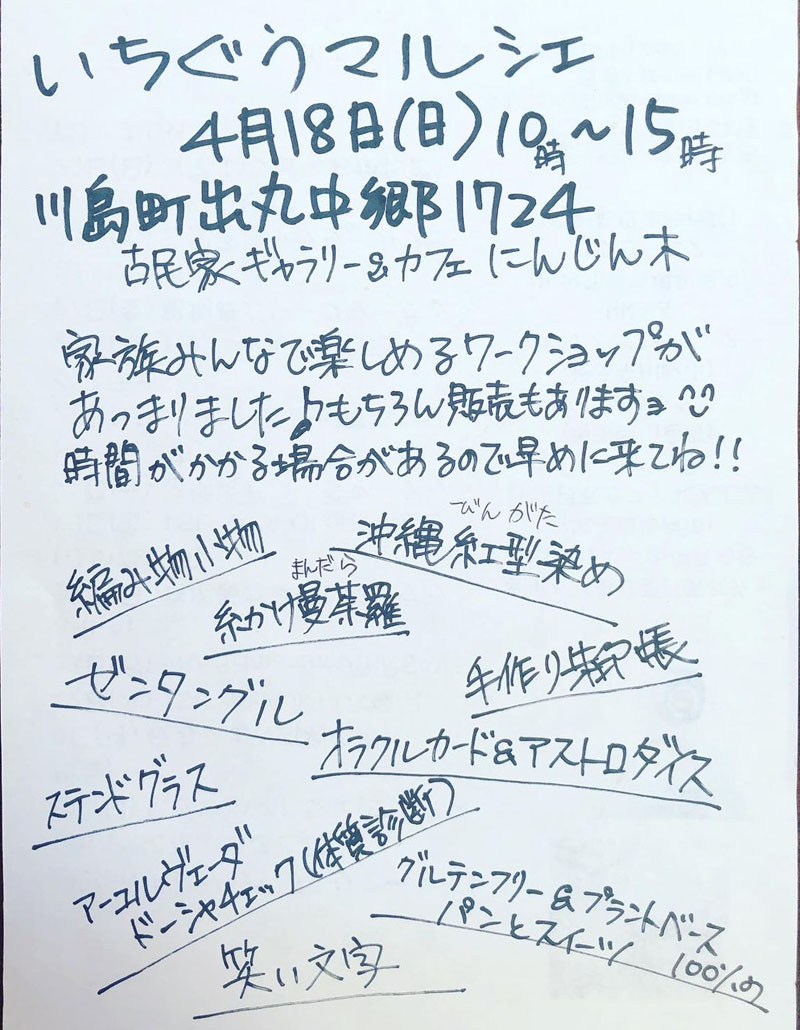 いちぐうマルシェ
4月18日(日)10時〜15時
川島町出丸中郷1724
古民家ギャラリー&カフェ にんじん木
家族みんなで楽しめるワークショップが
あつまりました♪もちろん販売もありますョ
時間がかかる場合があるので早めに来てね!!
びんがた
沖縄紅型染め
編み物小物
まんだら
糸かけ曼荼羅
手作り御朱印帳
ゼンタングル
オラクルカード&アストロダイス
ステンドグラス
アーユルヴェーダ
ドーシャチェック(体質診断)
グルテンフリー&プラントベース
パンとスイーツ 100%の
笑い文字